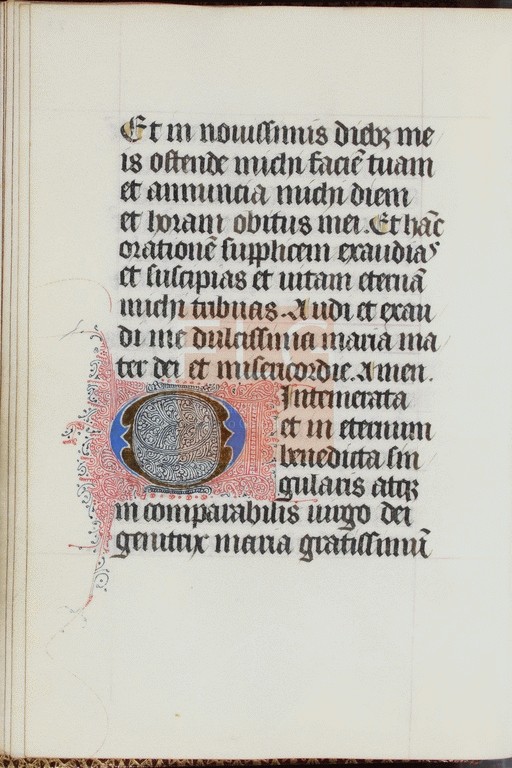 Et in nouissimis diebꝫ me
is ostende michi faciē tuam
et annuncia michi diem
et horam obitus mei. Et hāc
orationē supplicem exaudias
et suscipias et uitam eternā
michi tribuas. Audi et exau
di me dulcissima maria ma
ter dei et misericordie. Amen.
O Intemerata
et in eternum
benedicta sin
gularis atqꝫ
in comparabilis uirgo dei
genitrix maria gratissimū